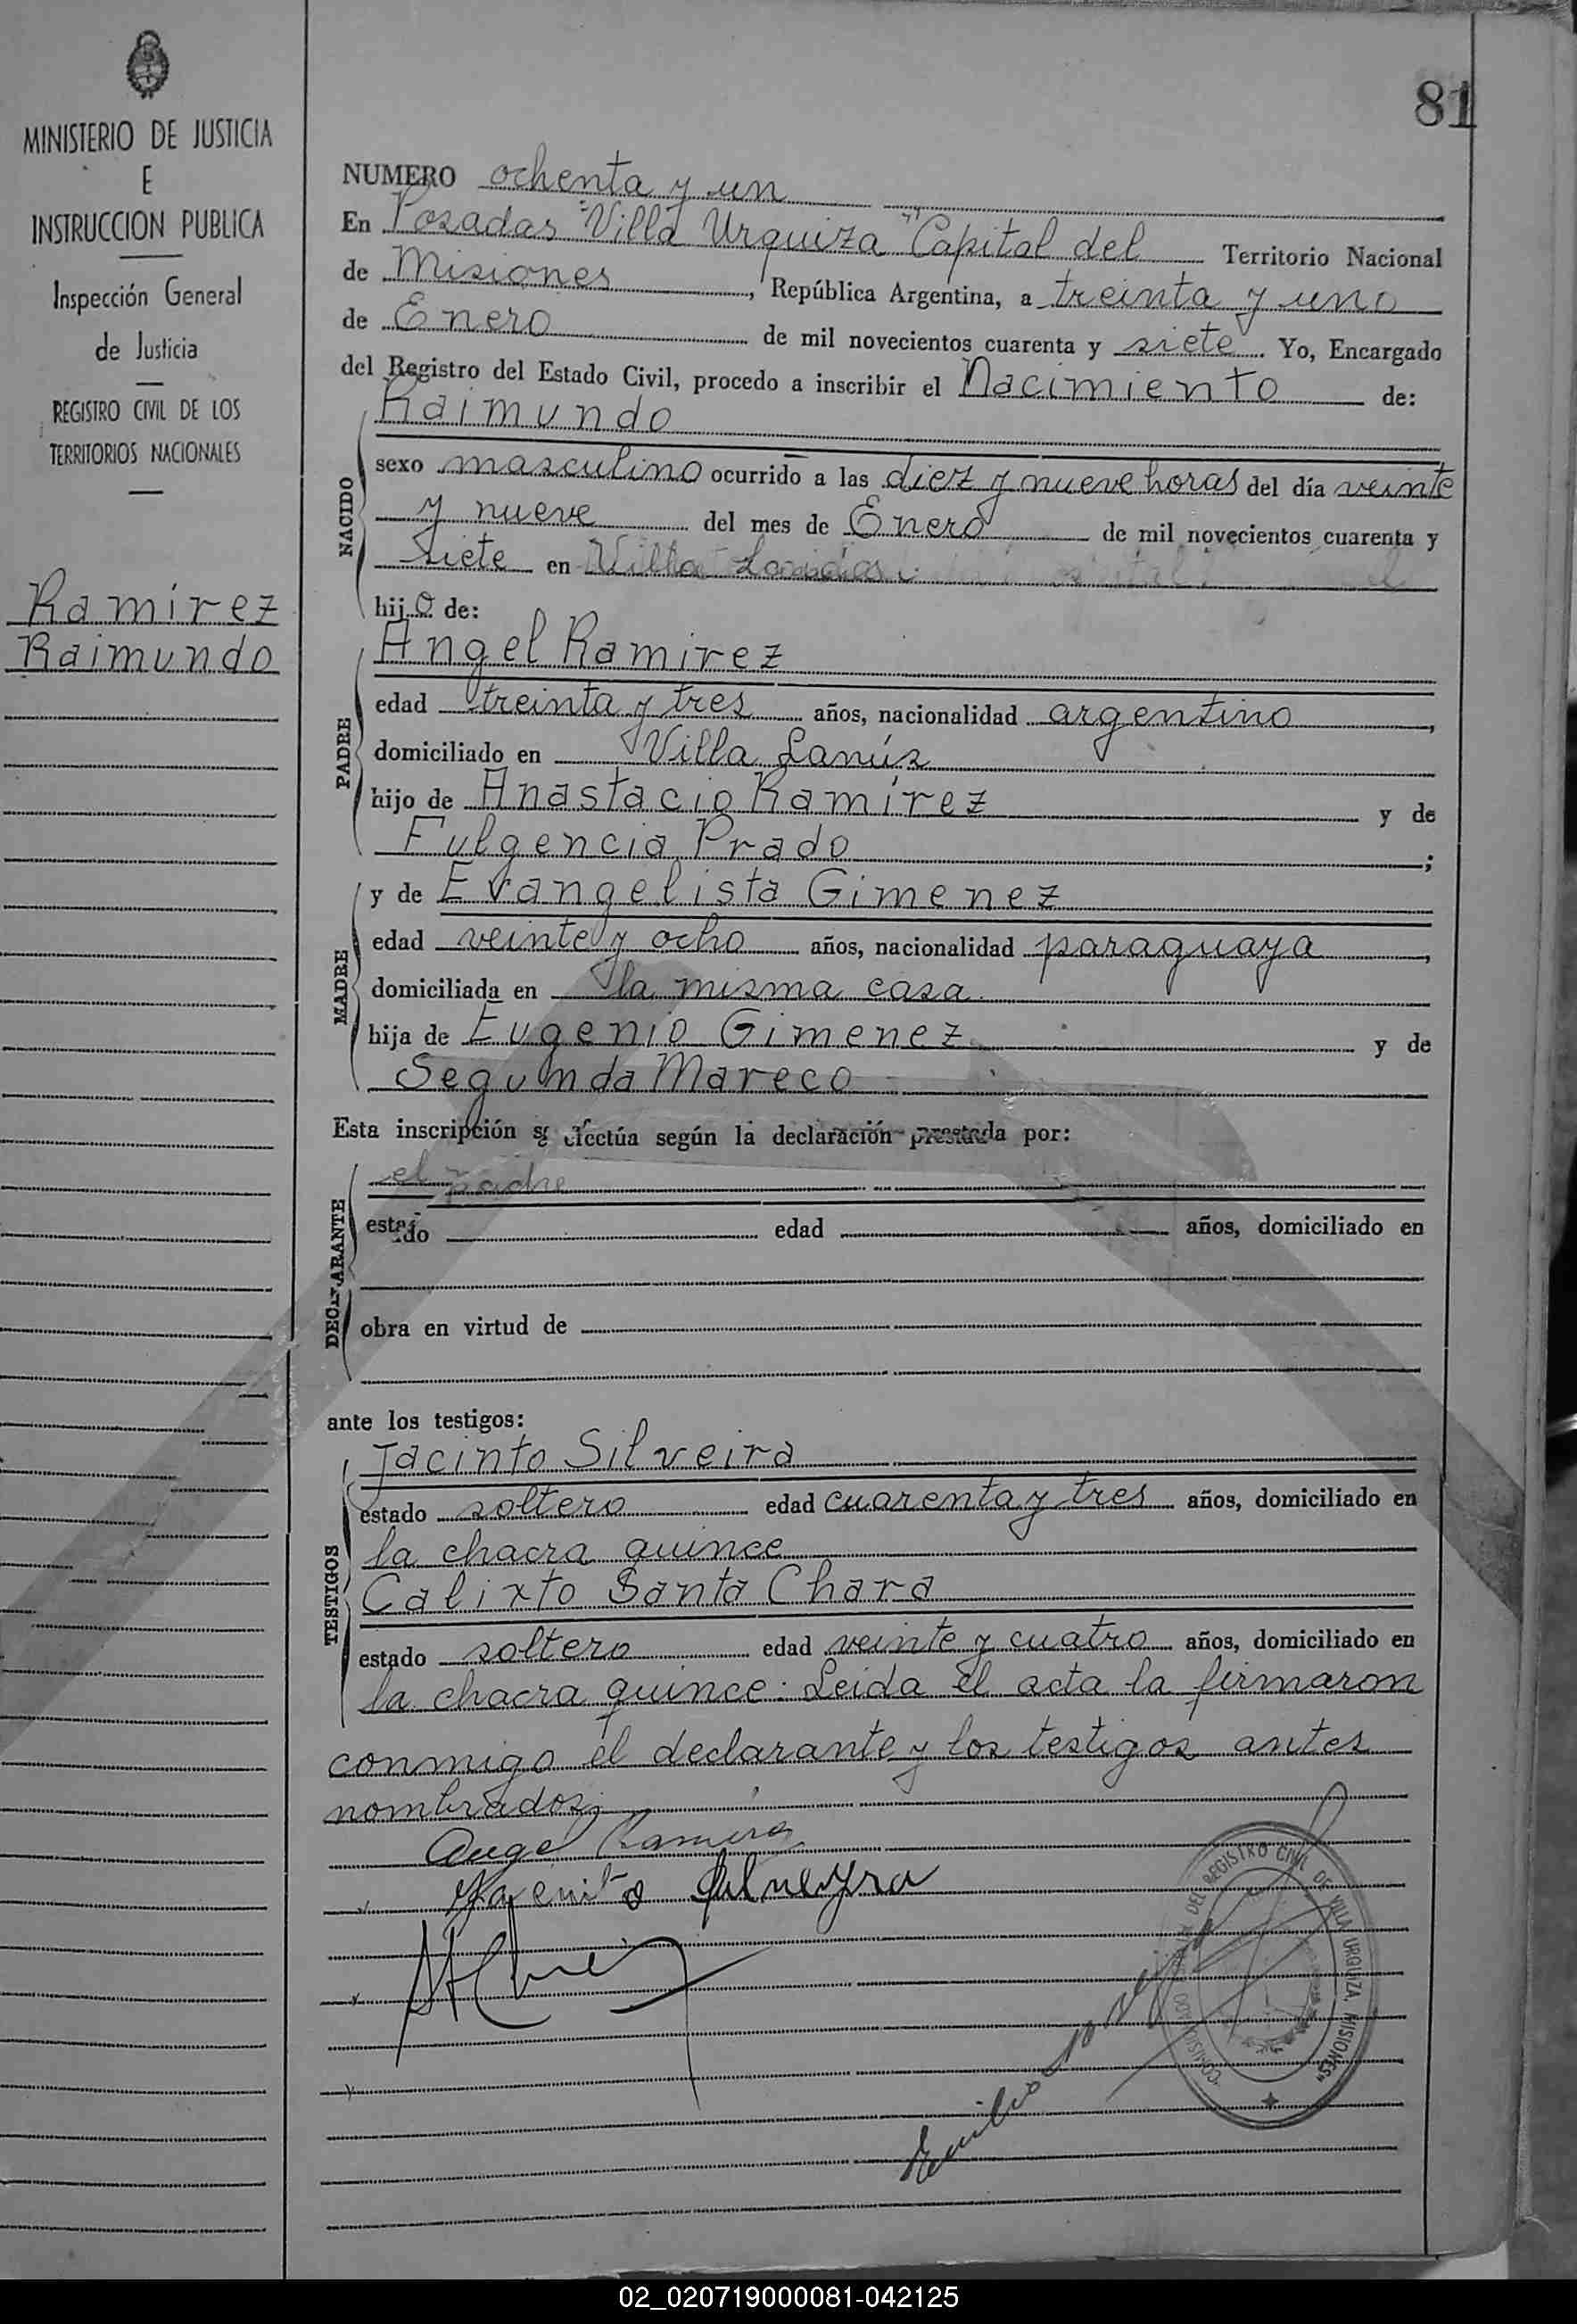 81
MINISTERIO DE JUSTICIA
E
INSTRUCCION PUBLICA
Inspección General
de Justicia
REGISTRO CIVIL DE LOS
TERRITORIOS NACIONALES
Ramirez
Raimundo
NUMERO ochenta y un
En Posadas "Villa Urquiza" Capital del Territorio Nacional
de Misiones, República Argentina, a treinta y uno
de Enero de mil novecientos cuarenta y siete. Yo, Encargado
del Registro del Estado Civil, procedo a inscribir el Nacimiento de:
Raimundo
NACIDO
sexo masculino ocurrido a las diez y nueve horas del día veinte
y nueve del mes de Enero de mil novecientos cuarenta y
siete en Villa
hijo de:
Angel Ramirez
PADRE
edad treinta y tres años, nacionalidad argentino,
domiciliado en Villa Lanús
hijo de Anastacio Ramírez y de
Fulgencia Prado;
y de Evangelista Gimenez
MADRE
edad veinte y ocho años, nacionalidad paraguaya,
domiciliada en la misma casa.
hija de Eugenio Gimenez y de
Segunda Mareco
Esta inscripción se efectúa según la declaración prestada por:
el padre
DECLARANTE
estado edad años, domiciliado en
obra en virtud de
ante los testigos:
Jacinto Silveira
TESTIGOS
estado soltero edad cuarenta y tres años, domiciliado en
la chacra quince
Calixto Santa Chara
estado soltero edad veinte y cuatro años, domiciliado en
la chacra quince: Leida el acta la firmaron
conmigo el declarante y los testigos antes
nombrados.
Angel Ramirez
DEL REGISTRO CIVIL DE VILLA URQUIZA, MISIONES
Emilio
02_020719000081-042125